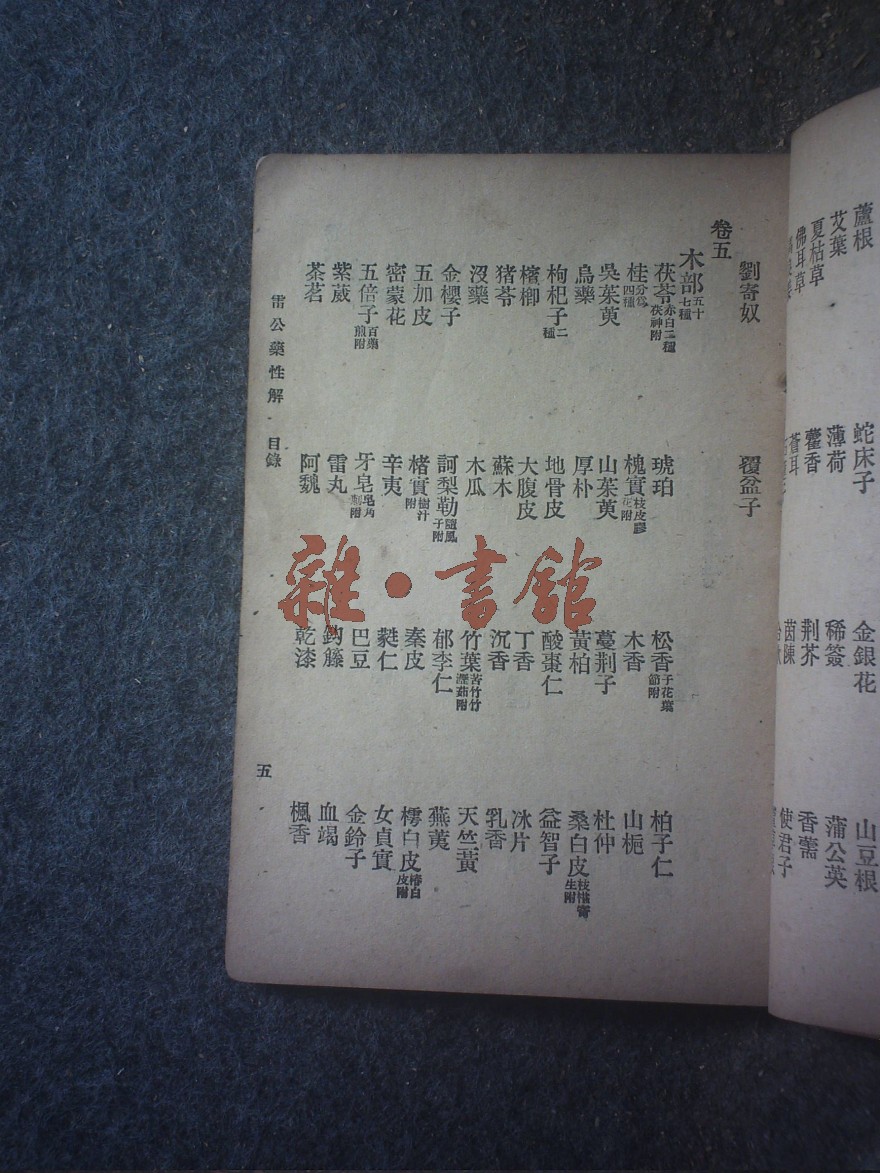 蘆根　蛇床子　金銀花　山豆根
艾葉　薄荷　稀簽　蒲公英
夏枯草　藿香　荆芥　香薷
佛耳草　蒼耳　茵陳　使君子
劉寄奴　覆盆子
卷五
木部五十七種
茯苓赤白二種茯神附　琥珀　松香子花葉節附　柏子仁
桂分爲四種　槐實枝皮膠花附　木香　山梔
吳茱萸　山茱萸　蔓荆子　杜仲
烏藥　厚朴　黃柏　桑白皮
枸杞子二種　地骨皮　酸棗仁　益智子
檳榔　大腹皮　丁香　冰片
猪苓　蘇木　沉香　乳香
沒藥　木瓜　竹葉苦竹竹瀝茹附　天竺黃
金櫻子　訶梨勒隨風子附　郁李仁　蕪荑
五加皮　楮實樹汁附　秦皮　樗白皮椿白皮附
密蒙花　辛夷　蕤仁　女貞實
五倍子百藥煎附　牙皂皂角刺附　巴豆　金鈴子
紫葳　雷丸　鈎籐　血竭
茶茗　阿魏　乾漆　楓香
雷公藥性解　目錄　五
雜·書館